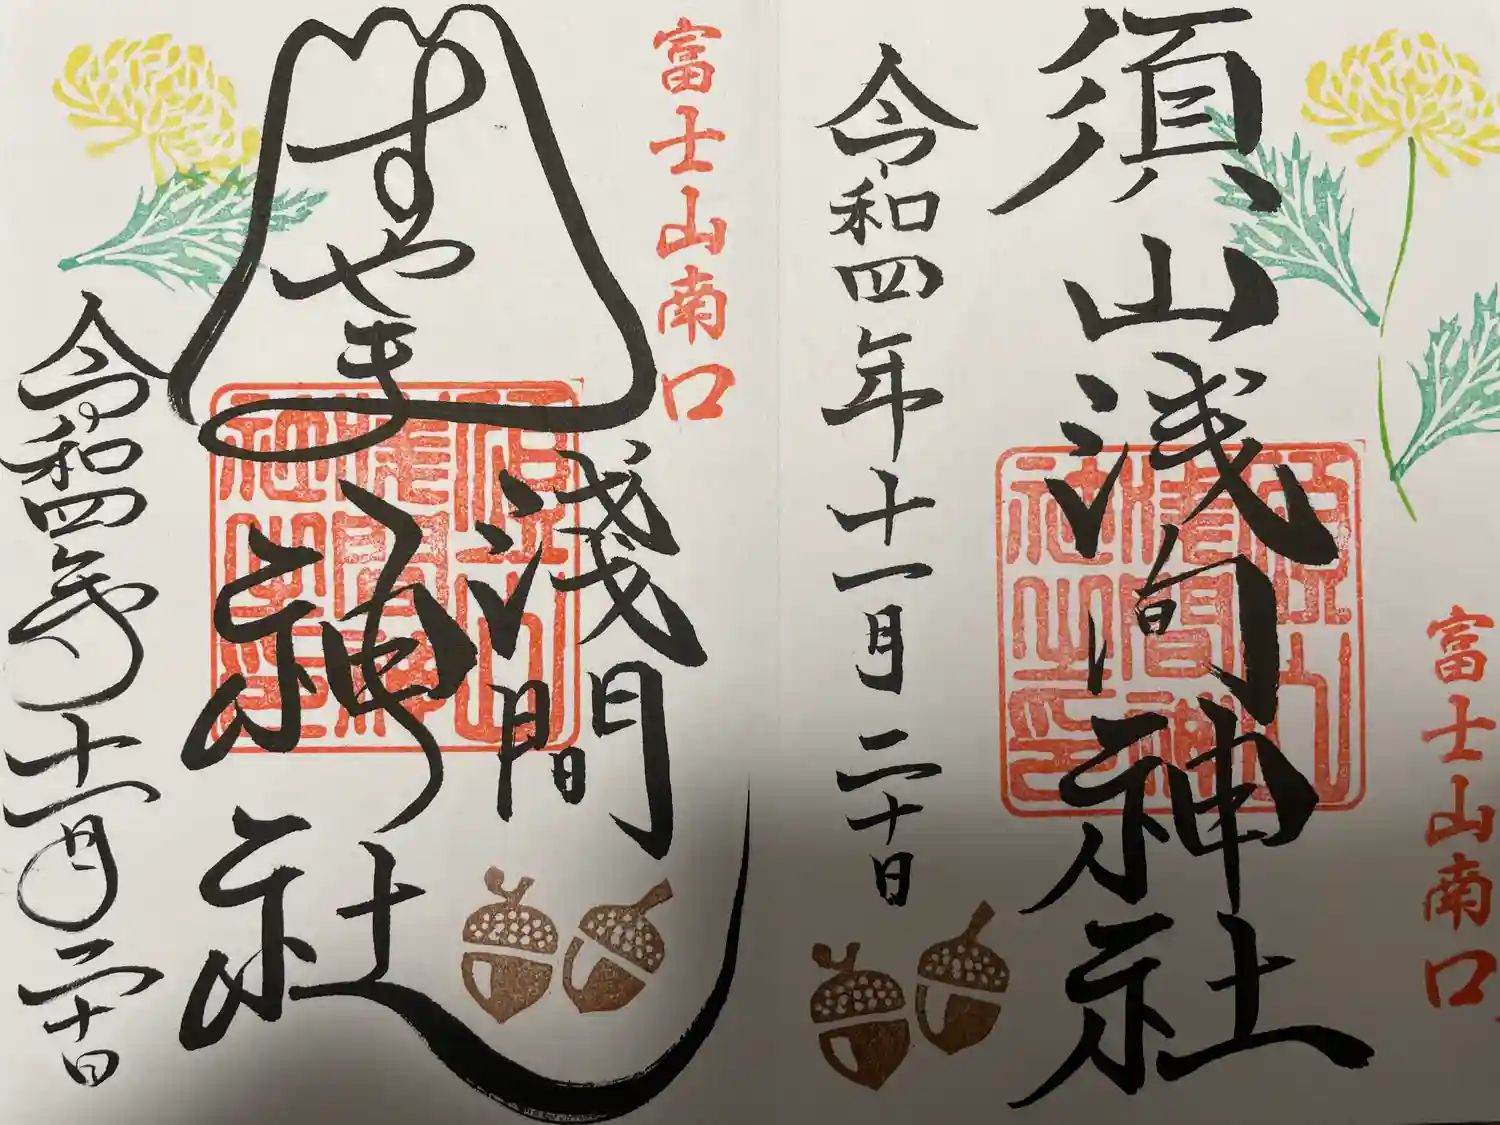 富士山南口
須山浅间神社
令和四年十一月二十日
富士山南口
すやま
淺間
神社
令和四年十一月二十日